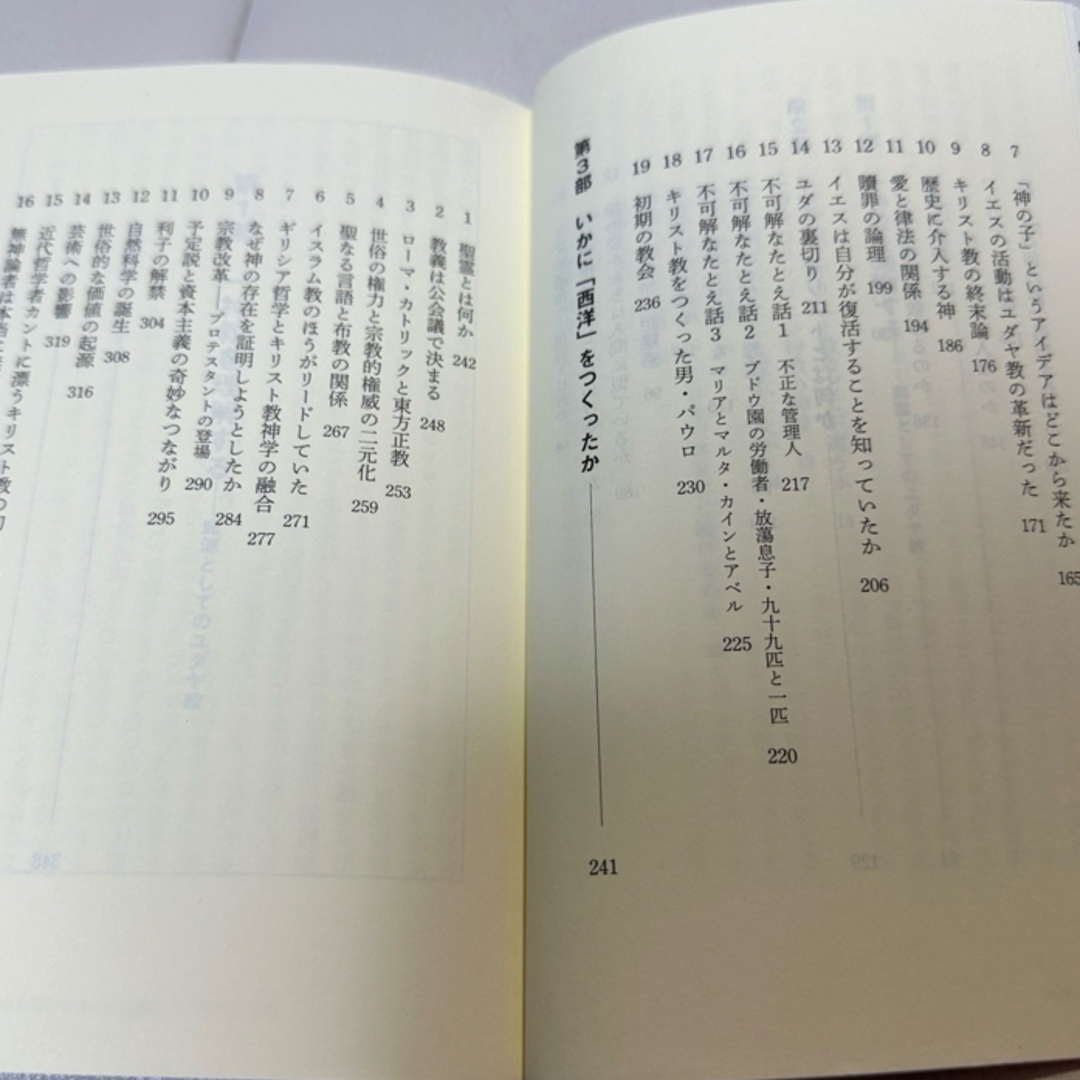 7 「神の子」というアイデアはどこから来たか 165
8 イエスの活動はユダヤ教の革新だった 171
9 キリスト教の終末論 176
10 歴史に介入する神 186
11 愛と律法の関係 194
12 贖罪の論理 199
13 イエスは自分が復活することを知っていたか 206
14 ユダの裏切り 211
15 不可解なたとえ話1 不正な管理人 217
16 不可解なたとえ話2 ブドウ園の労働者・放蕩息子・九十九匹と一匹 220
17 不可解なたとえ話3 マリアとマルタ・カインとアベル 225
18 キリスト教をつくった男・パウロ 230
19 初期の教会 236
第3部 いかに「西洋」をつくったか 241
1 聖霊とは何か 242
2 教義は公会議で決まる 248
3 ローマ・カトリックと東方正教 253
4 世俗の権力と宗教的権威の二元化 259
5 聖なる言語と布教の関係 267
6 イスラム教のほうがリードしていた 271
7 ギリシア哲学とキリスト教神学の融合 277
8 なぜ神の存在を証明しようとしたか 284
9 宗教改革――プロテスタントの登場 290
10 予定説と資本主義の奇妙なつながり 295
11 利子の解禁 304
12 自然科学の誕生 308
13 世俗的な価値の起源 316
14 芸術への影響 319
15 近代哲学者カントに漂うキリスト教の
16 無神論者は本当に